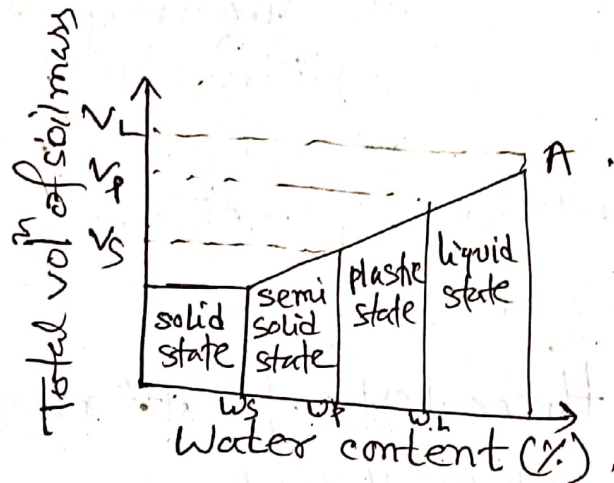 Total volⁿ of soil mass
V_L
V_P
V_S
A
solid state
semi solid state
plastic state
liquid state
W_S
W_P
W_L
Water content (%)